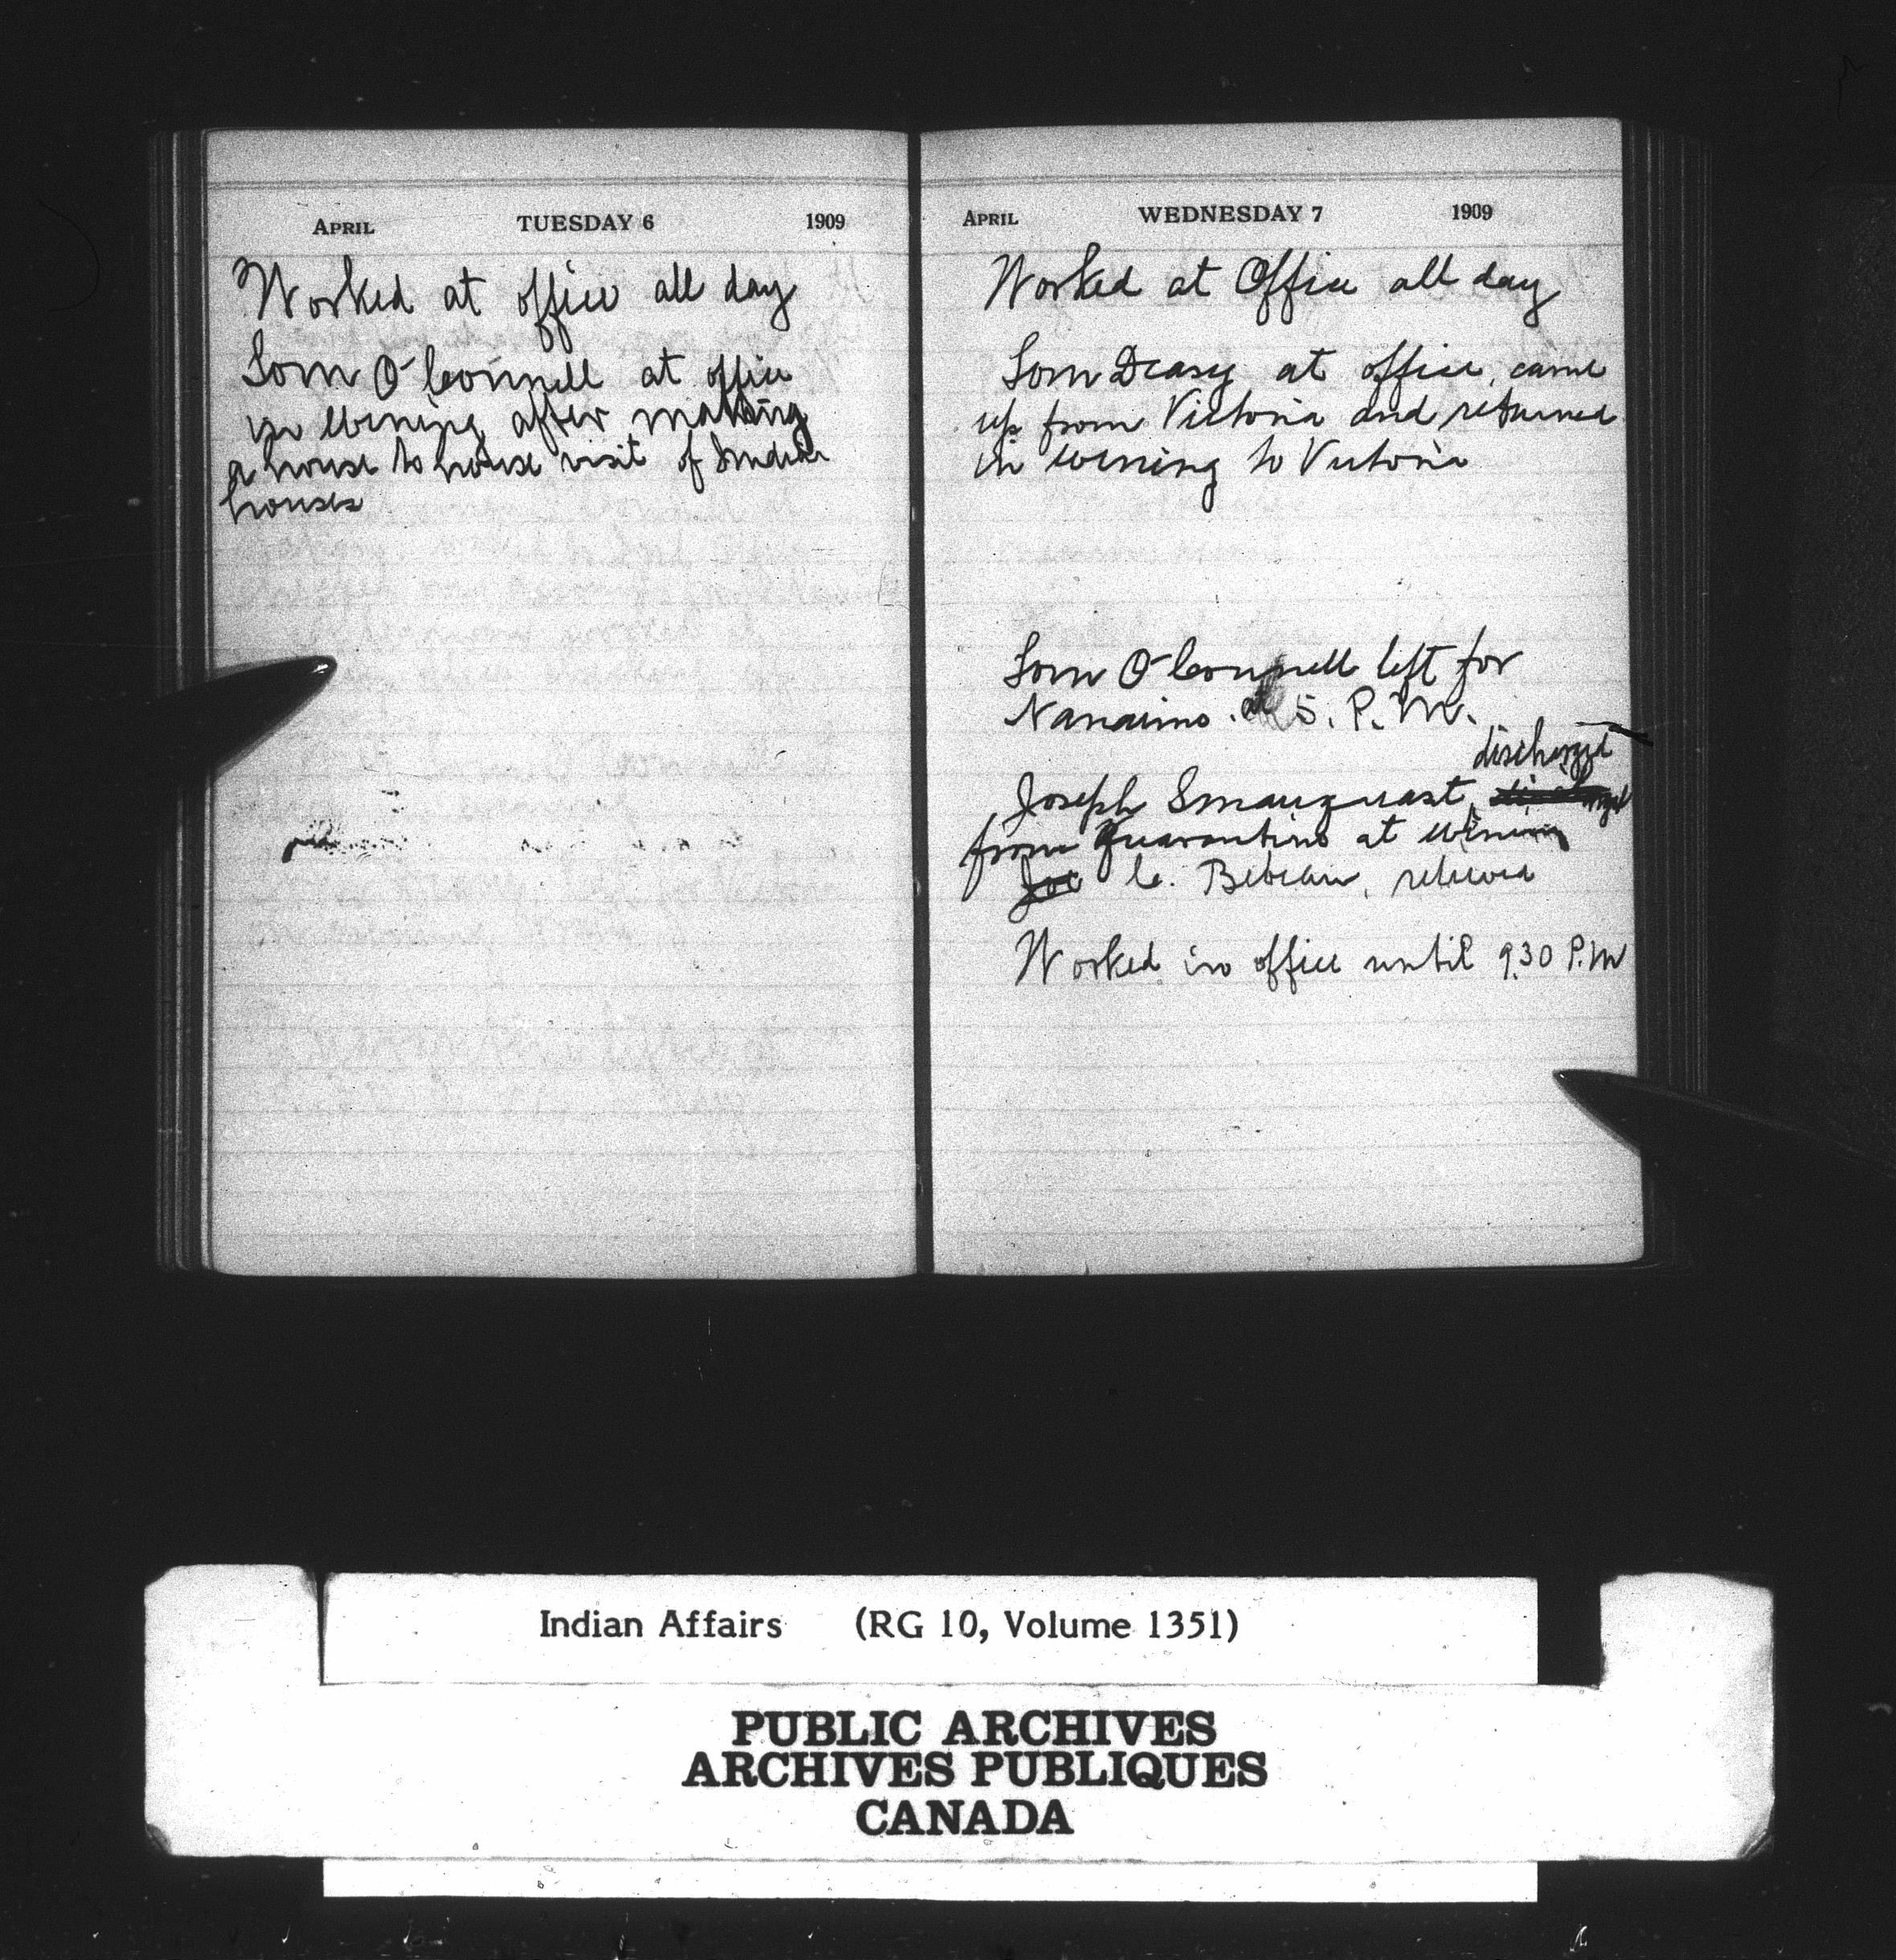 APRIL TUESDAY 6 1909
Worked at office all day
Tom O'Connell at office
in evening after making
a house to house visit of Indian
houses
APRIL WEDNESDAY 7 1909
Worked at Office all day
Tom Deasy at office, came
up from Victoria and returned
in evening to Victoria
Tom O'Connell left for
Nanaimo. at 5. P.M.
discharged
Joseph
from Quarantine at evening
Joe C. relieved
Worked in office until 9.30 P.M
Indian Affairs (RG 10, Volume 1351)
PUBLIC ARCHIVES
ARCHIVES PUBLIQUES
CANADA